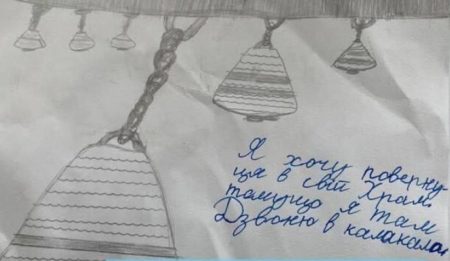 Я хочу поверну
ця в свій Храм
томущо я там
Дзвоню в калакала